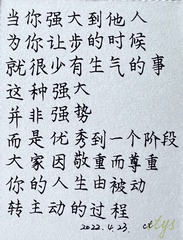 当你强大到他人
为你让步的时候
就很少有生气的事
这种强大
并非强势
而是优秀到一个阶段
大家因敬重而尊重
你的人生由被动
转主动的过程
2022.4.23.